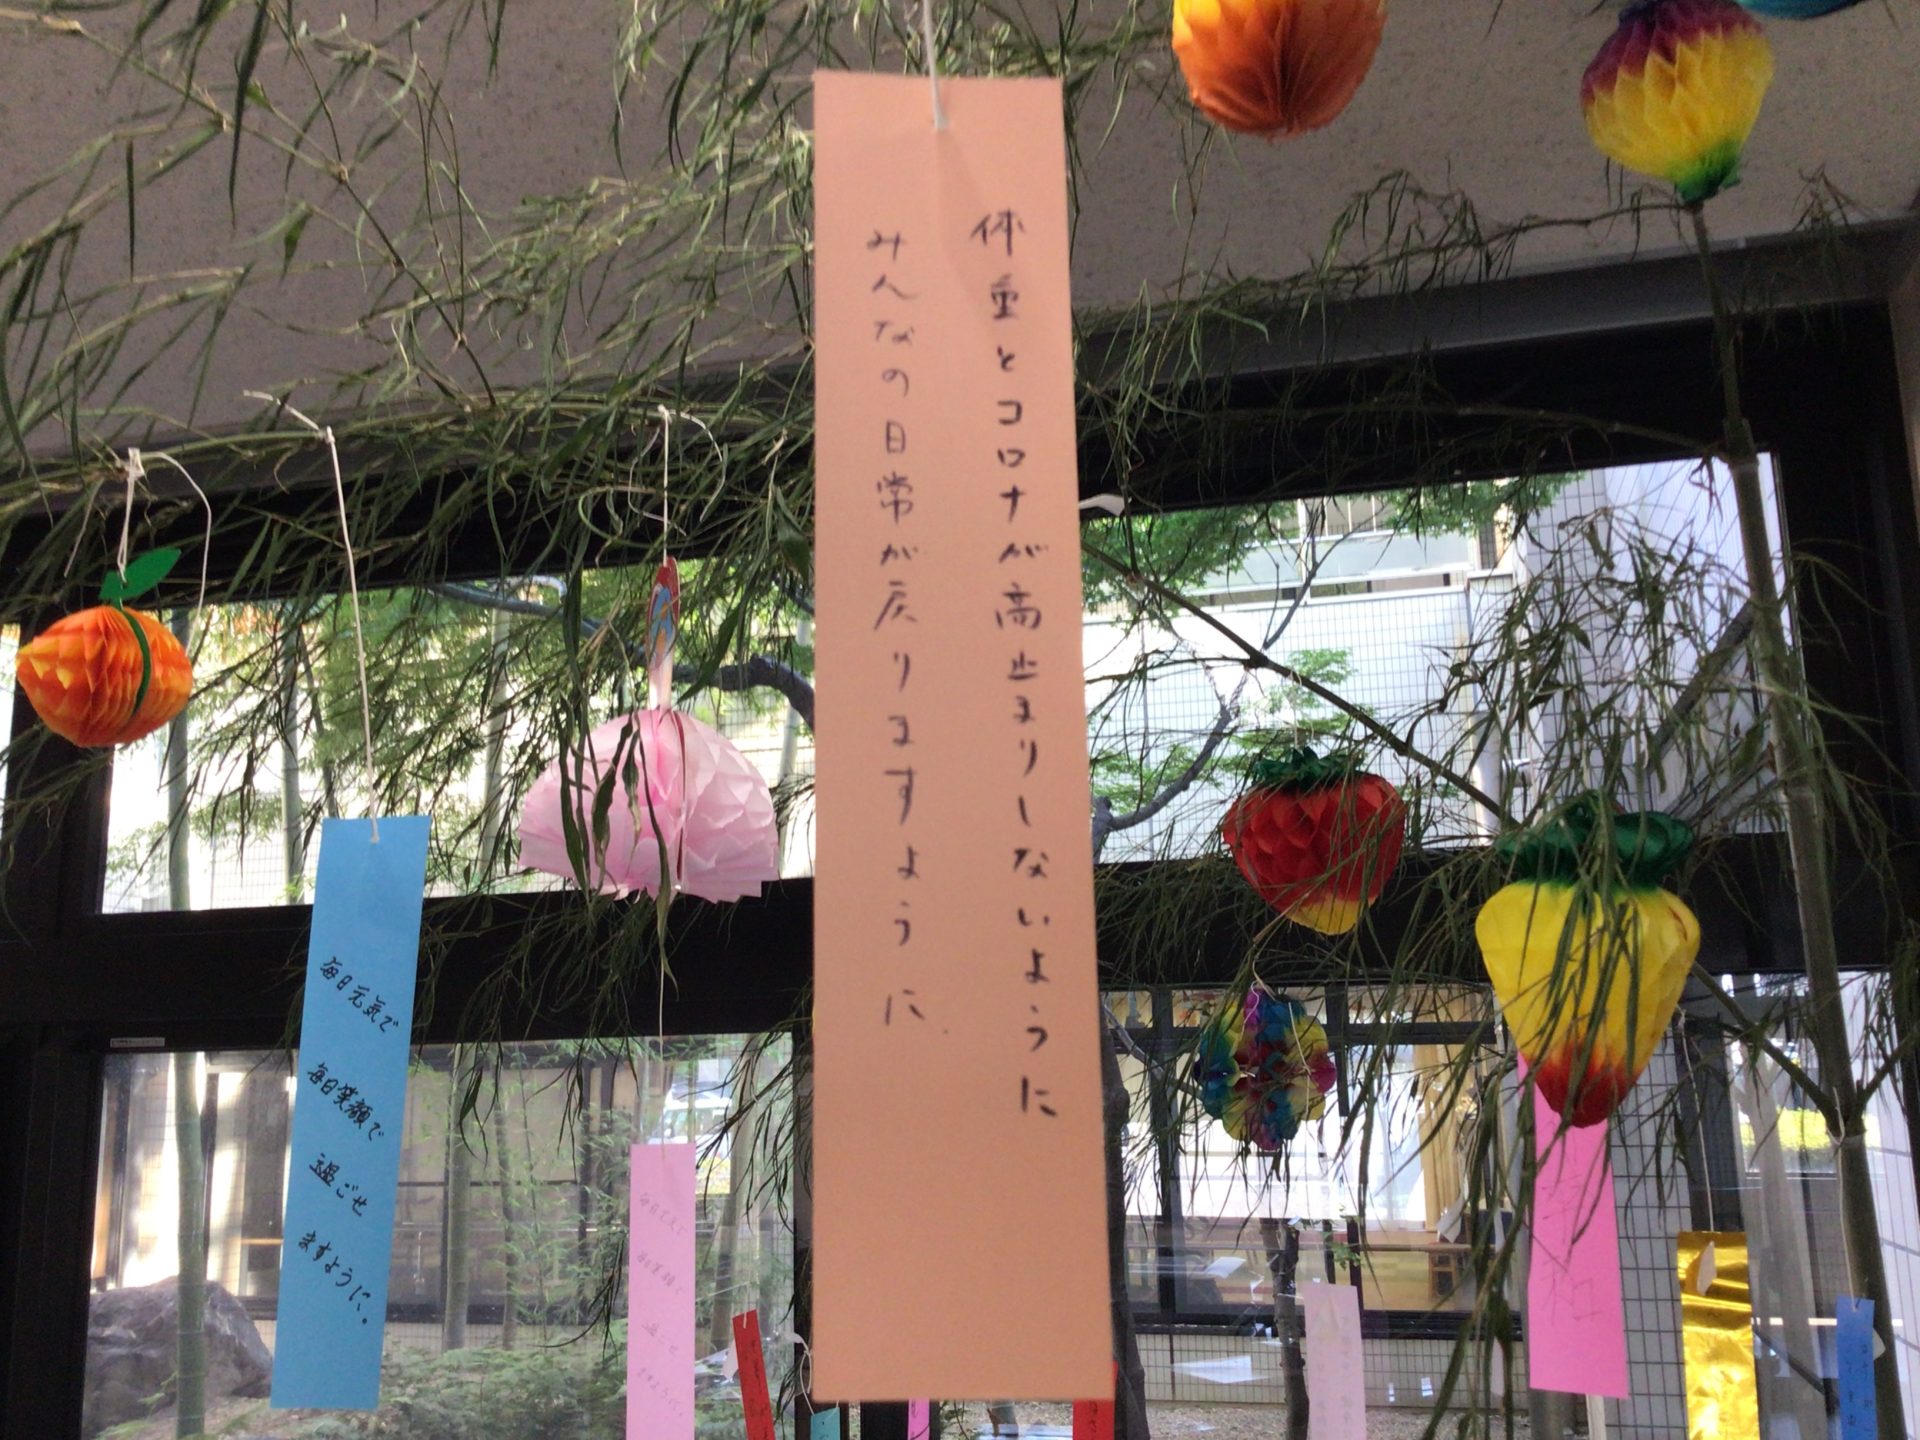 体重とコロナが高止まりしないように
みんなの日常が戻りますように
毎日元気で
毎日笑顔で
過ごせ
ますように。
毎日元気で
毎日笑顔で
過ごせ
ますように。